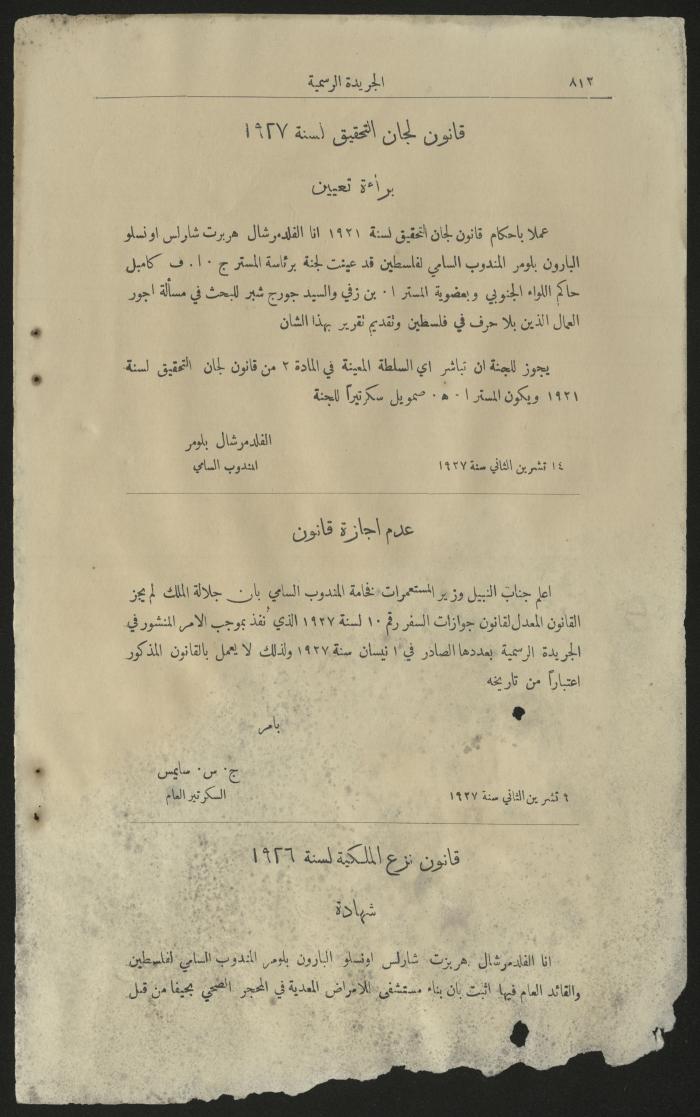 ٨١٢
الجريدة الرسمية
قانون لجان التحقيق لسنة ١٩٢٧
براءة تعيين
عملا باحكام قانون لجان التحقيق لسنة ١٩٢١ انا الفلدمرشال هربرت شارلس اونسلو
البارون بلومر المندوب السامي لفلسطين قد عينت لجنة برئاسة المستر ج ٠ ا . ف كامبل
حاكم اللواء الجنوبي وبعضوية المستر ا ٠ بن زفي والسيد جورج شبر للبحث في مسألة اجور
العمال الذين بلا حرف في فلسطين وتقديم تقرير بهذا الشان
يجوز للجنة ان تباشر اي السلطة المعينة في المادة ٢ من قانون لجان التحقيق لسنة
١٩٢١ ويكون المستر ا ٠ ه ٠ صمويل سكرتيراً للجنة
الفلدمرشال بلومر
١٤ تشرين الثاني سنة ١٩٢٧
المندوب السامي
عدم اجازة قانون
اعلم جناب النبيل وزير المستعمرات فخامة المندوب السامي بان جلالة الملك لم يجز
القانون المعدل لقانون جوازات السفر رقم ١٠ لسنة ١٩٢٧ الذي نُفذ بموجب الامر المنشور في
الجريدة الرسمية بعددها الصادر في ١ نيسان سنة ١٩٢٧ ولذلك لا يعمل بالقانون المذكور
اعتباراً من تاريخه
بامر
ج ٠ س ٠ سايمس
٩ تشرين الثاني سنة ١٩٢٧
السكرتير العام
قانون نزع الملكية لسنة ١٩٢٦
شهادة
انا الفلدمرشال هربرت شارلس اونسلو البارون بلومر المندوب السامي لفلسطين
والقائد العام فيها اثبت بان بناء مستشفى للامراض المعدية في المحجر الصحي بحيفا من قبل